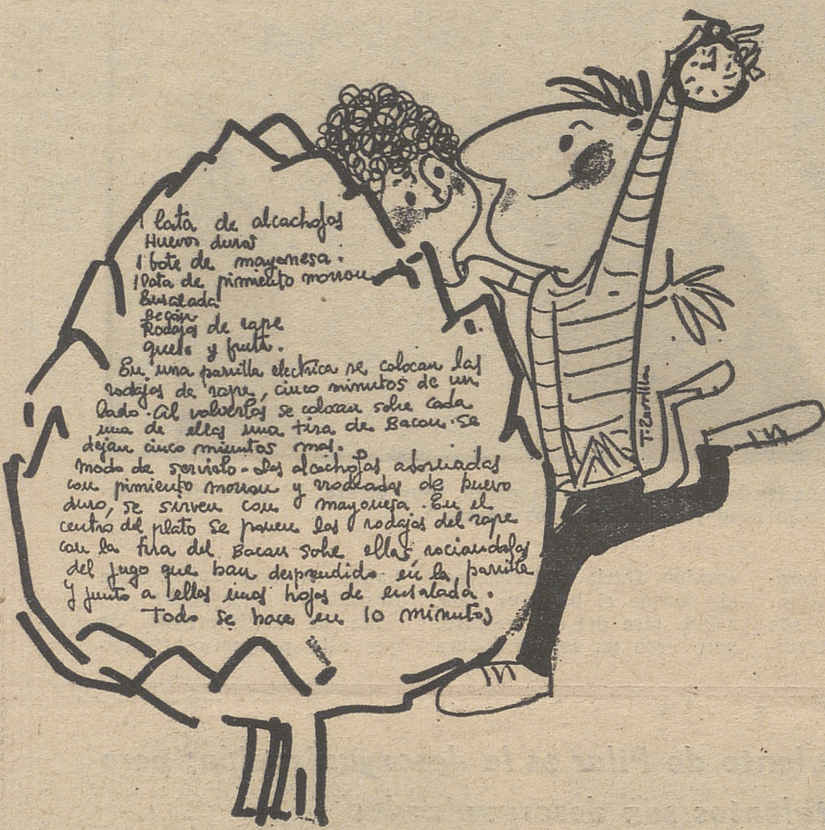 1 lata de alcachofas
Huevos duros
1 bote de mayonesa.
1 lata de pimiento morron
Ensalada
Becon
Rodajas de rape
queso y fruta.
En una parrilla electrica se colocan las
rodajas de rape, cinco minutos de un
lado. Al volverlas se colocan sobre cada
una de ellas una tira de Bacon. Se
dejan cinco minutos mas.
Modo de servirlo. Las alcachofas adornadas
con pimiento morron y rodeadas de huevo
duro, se sirven con mayonesa. En el
centro del plato se ponen las rodajas del rape
con la tira del Bacon sobre ellas rociandolas
del jugo que han desprendido en la parrilla
y junto a ellas unas hojas de ensalada.
Todo se hace en 10 minutos
T. Zorrilla